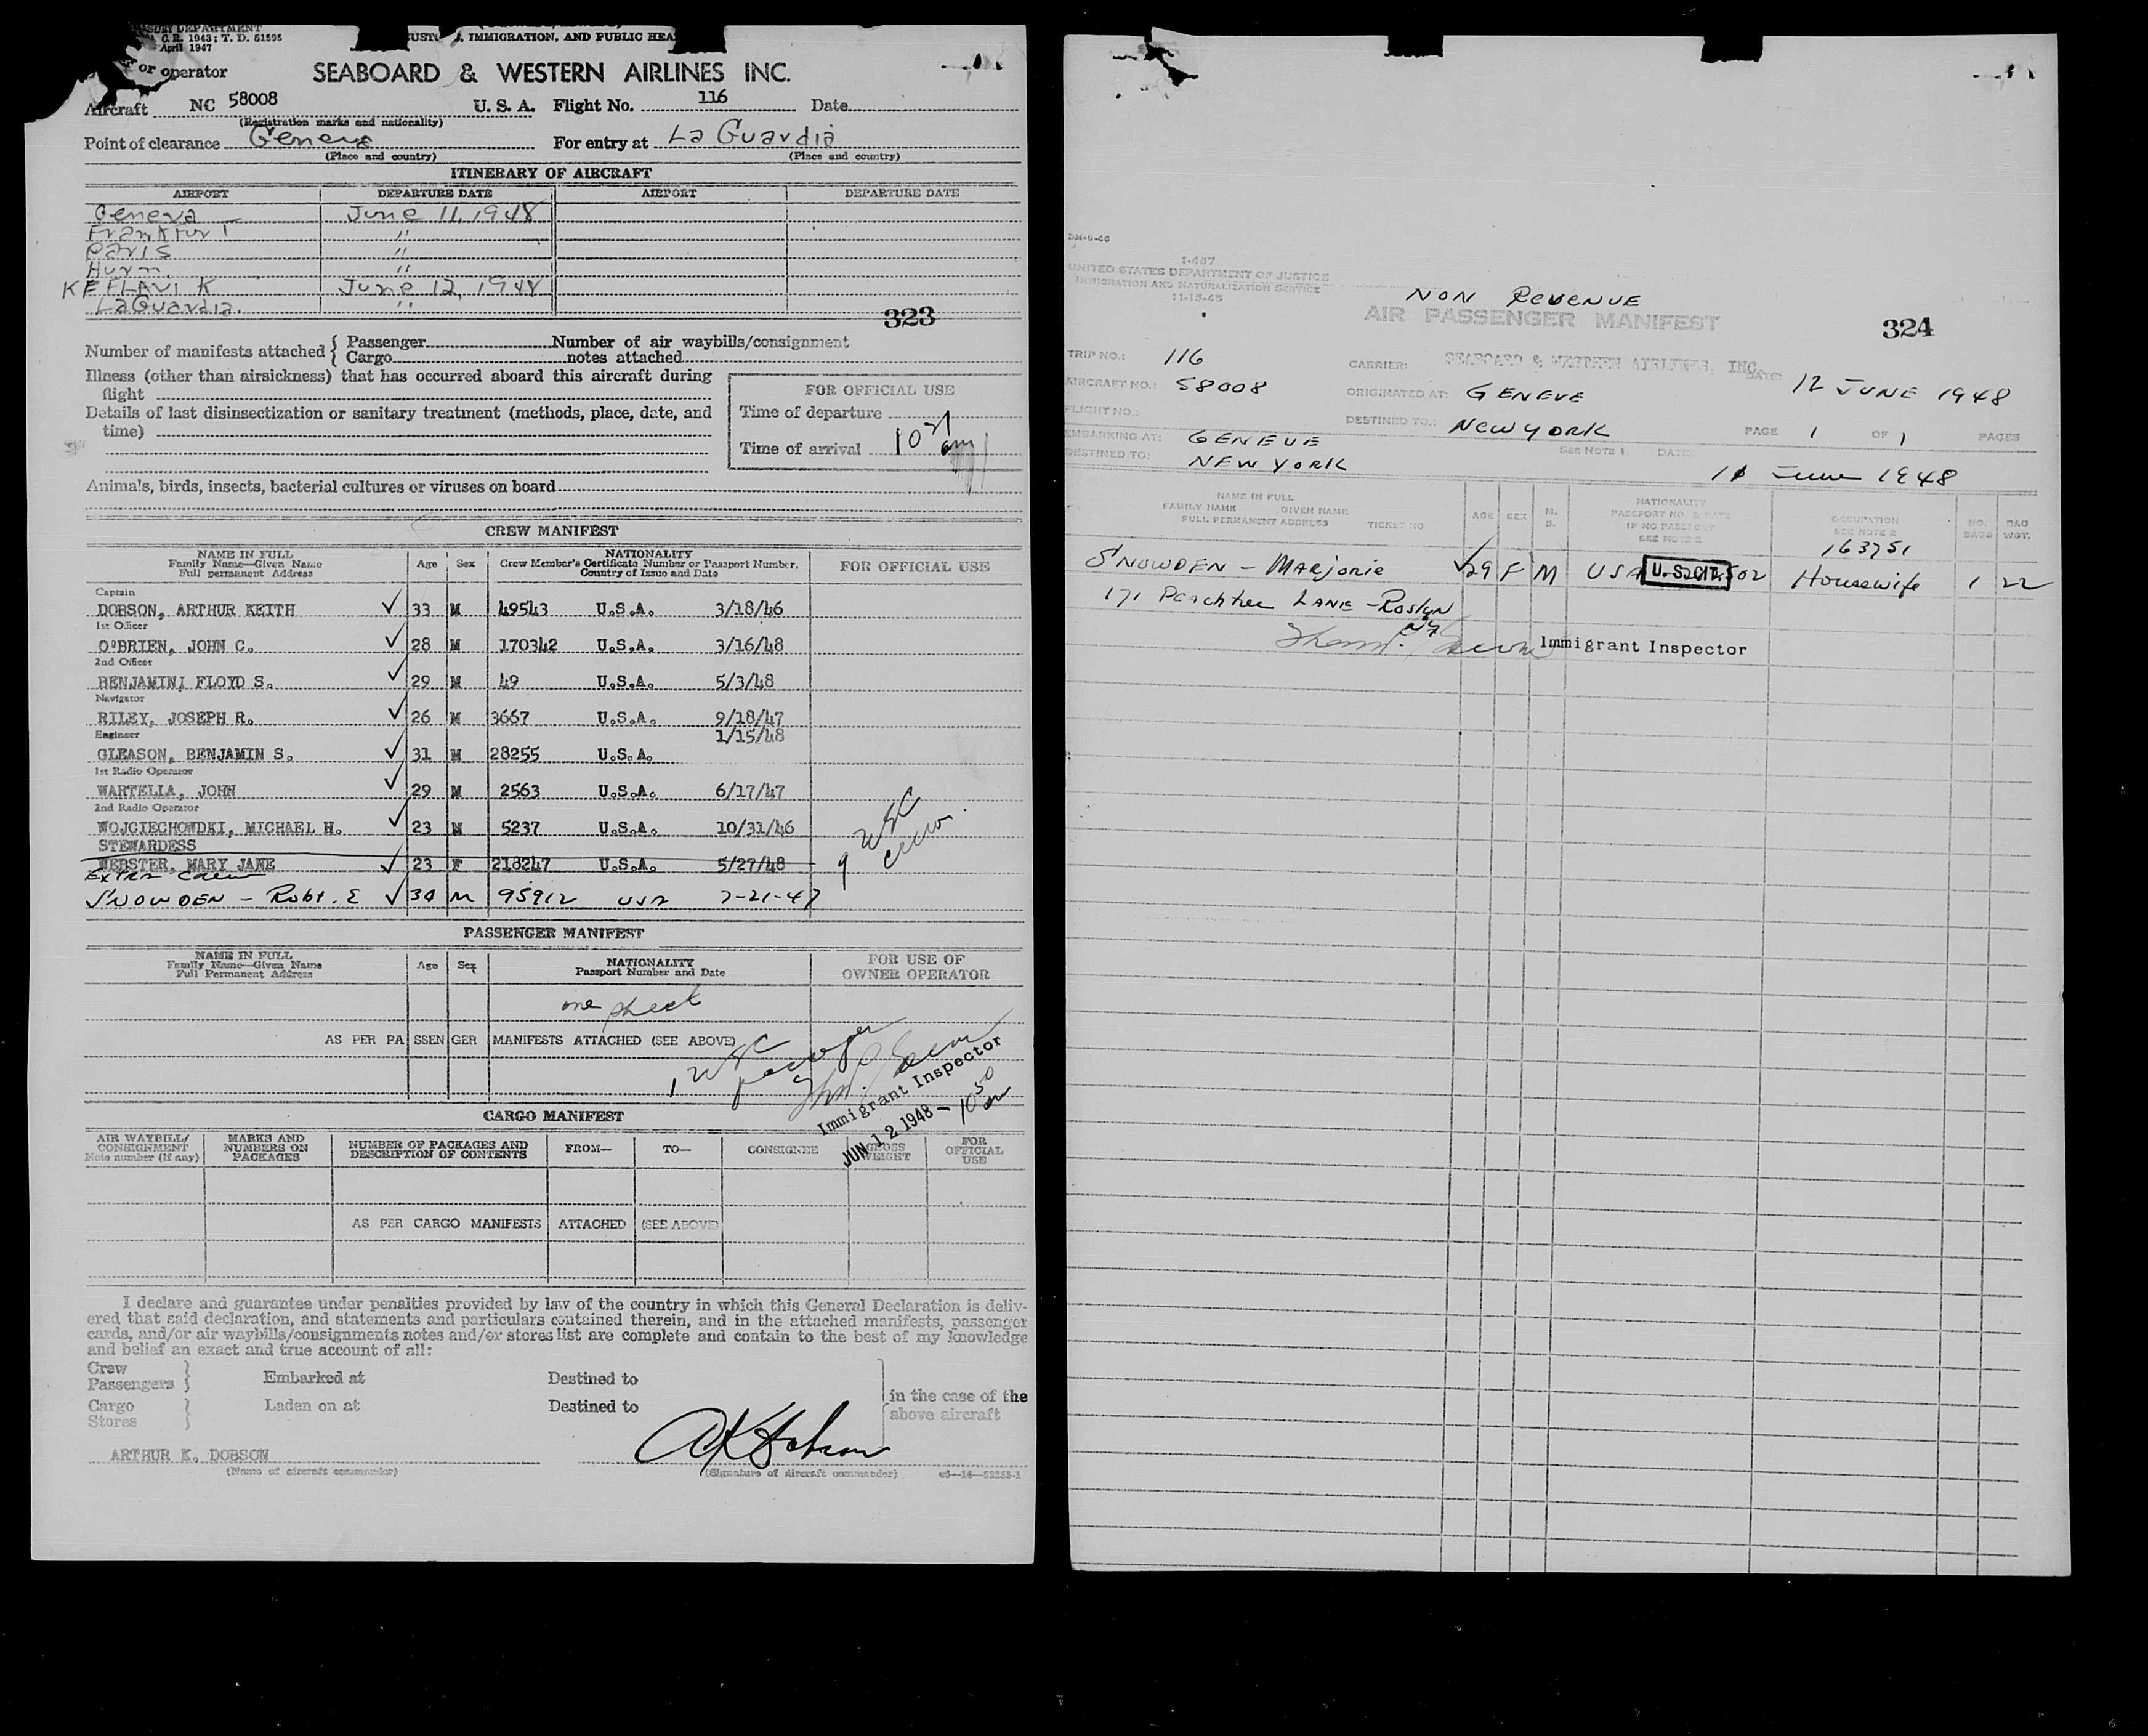 TREASURY DEPARTMENT
C. R. 1943; T. D. 51595
April 1947
CUSTOMS, IMMIGRATION, AND PUBLIC HEA
or operator SEABOARD & WESTERN AIRLINES INC.
Aircraft NC 58008 U. S. A. Flight No. 116 Date
(Registration marks and nationality)
Point of clearance Geneva For entry at La Guardia
(Place and country) (Place and country)
ITINERARY OF AIRCRAFT
AIRPORT DEPARTURE DATE AIRPORT DEPARTURE DATE
Geneva June 11, 1948
Frankfurt "
Paris "
Hurn. "
KEFLAVIK June 12, 1948
LaGuardia. "
323
Number of manifests attached { Passenger Number of air waybills/consignment
Cargo notes attached
Illness (other than airsickness) that has occurred aboard this aircraft during
flight
Details of last disinsectization or sanitary treatment (methods, place, date, and
time)
FOR OFFICIAL USE
Time of departure
Time of arrival 10 am
Animals, birds, insects, bacterial cultures or viruses on board
CREW MANIFEST
NAME IN FULL
Family Name—Given Name
Full permanent Address
Age Sex
NATIONALITY
Crew Member's Certificate Number or Passport Number,
Country of Issue and Date
FOR OFFICIAL USE
Captain
DOBSON, ARTHUR KEITH ✓ 33 M 49543 U.S.A. 3/18/46
1st Officer
O'BRIEN, JOHN C. ✓ 28 M 170342 U.S.A. 3/16/48
2nd Officer
BENJAMIN, FLOYD S. ✓ 29 M 49 U.S.A. 5/3/48
Navigator
RILEY, JOSEPH R. ✓ 26 M 3667 U.S.A. 9/18/47
Engineer 1/15/48
GLEASON, BENJAMIN S. ✓ 31 M 28255 U.S.A.
1st Radio Operator
WARTELLA, JOHN ✓ 29 M 2563 U.S.A. 6/17/47
2nd Radio Operator
WOJCIECHOWDKI, MICHAEL H. ✓ 23 M 5237 U.S.A. 10/31/46
STEWARDESS
WEBSTER, MARY JANE ✓ 23 F 218247 U.S.A. 5/27/48
9 USC crew
Extra Crew
SNOWDEN - Robt. E ✓ 30 M 95912 USA 7-21-47
PASSENGER MANIFEST
NAME IN FULL
Family Name—Given Name
Full Permanent Address
Age Sex
NATIONALITY
Passport Number and Date
FOR USE OF
OWNER OPERATOR
one sheet
AS PER PASSENGER MANIFESTS ATTACHED (SEE ABOVE)
1 USC passenger
Immigrant Inspector
JUN 12 1948 - 10 50 am
CARGO MANIFEST
AIR WAYBILL/
CONSIGNMENT
Note number (if any)
MARKS AND
NUMBERS ON
PACKAGES
NUMBER OF PACKAGES AND
DESCRIPTION OF CONTENTS
FROM— TO— CONSIGNEE
GROSS
WEIGHT
FOR
OFFICIAL
USE
AS PER CARGO MANIFESTS ATTACHED (SEE ABOVE)
I declare and guarantee under penalties provided by law of the country in which this General Declaration is deliv-
ered that said declaration, and statements and particulars contained therein, and in the attached manifests, passenger
cards, and/or air waybills/consignments notes and/or stores list are complete and contain to the best of my knowledge
and belief an exact and true account of all:
Crew
Passengers } Embarked at Destined to
Cargo
Stores } Laden on at Destined to
in the case of the
above aircraft
ARTHUR K. DOBSON AK Dobson
(Name of aircraft commander) (Signature of aircraft commander)
I-467
UNITED STATES DEPARTMENT OF JUSTICE
IMMIGRATION AND NATURALIZATION SERVICE
11-15-45
NON REVENUE
AIR PASSENGER MANIFEST
324
TRIP NO.: 116 CARRIER: SEABOARD & WESTERN AIRLINES, INC. DATE: 12 JUNE 1948
AIRCRAFT NO.: 58008 ORIGINATED AT: GENEVE
FLIGHT NO.: DESTINED TO: NEW YORK PAGE 1 OF 1 PAGES
EMBARKING AT: GENEVE SEE NOTE 1 DATE:
DESTINED TO: NEW YORK 11 June 1948
NAME IN FULL
FAMILY NAME GIVEN NAME
FULL PERMANENT ADDRESS TICKET NO.
AGE SEX M. S.
NATIONALITY
PASSPORT NO. & DATE
IF NO PASSPORT
SEE NOTE 2
OCCUPATION
SEE NOTE 2
NO. BAGS BAG WGT.
163751
SNOWDEN - Marjorie ✓ 29 F M USA U.S. CIT. 502 Housewife 1 22
171 Peachtree LANE - Roslyn NY
Immigrant Inspector